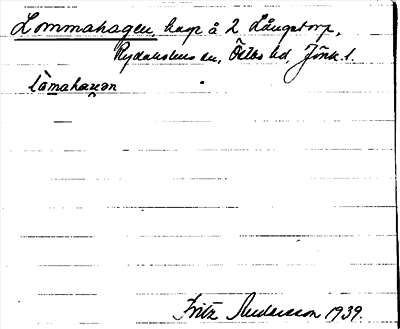 Lommahagen, hage å 2 Långstorp,
Rydaholms sn, Östbo hd, Jönk. l.
låmahagən
Fritz Andersson 1939.